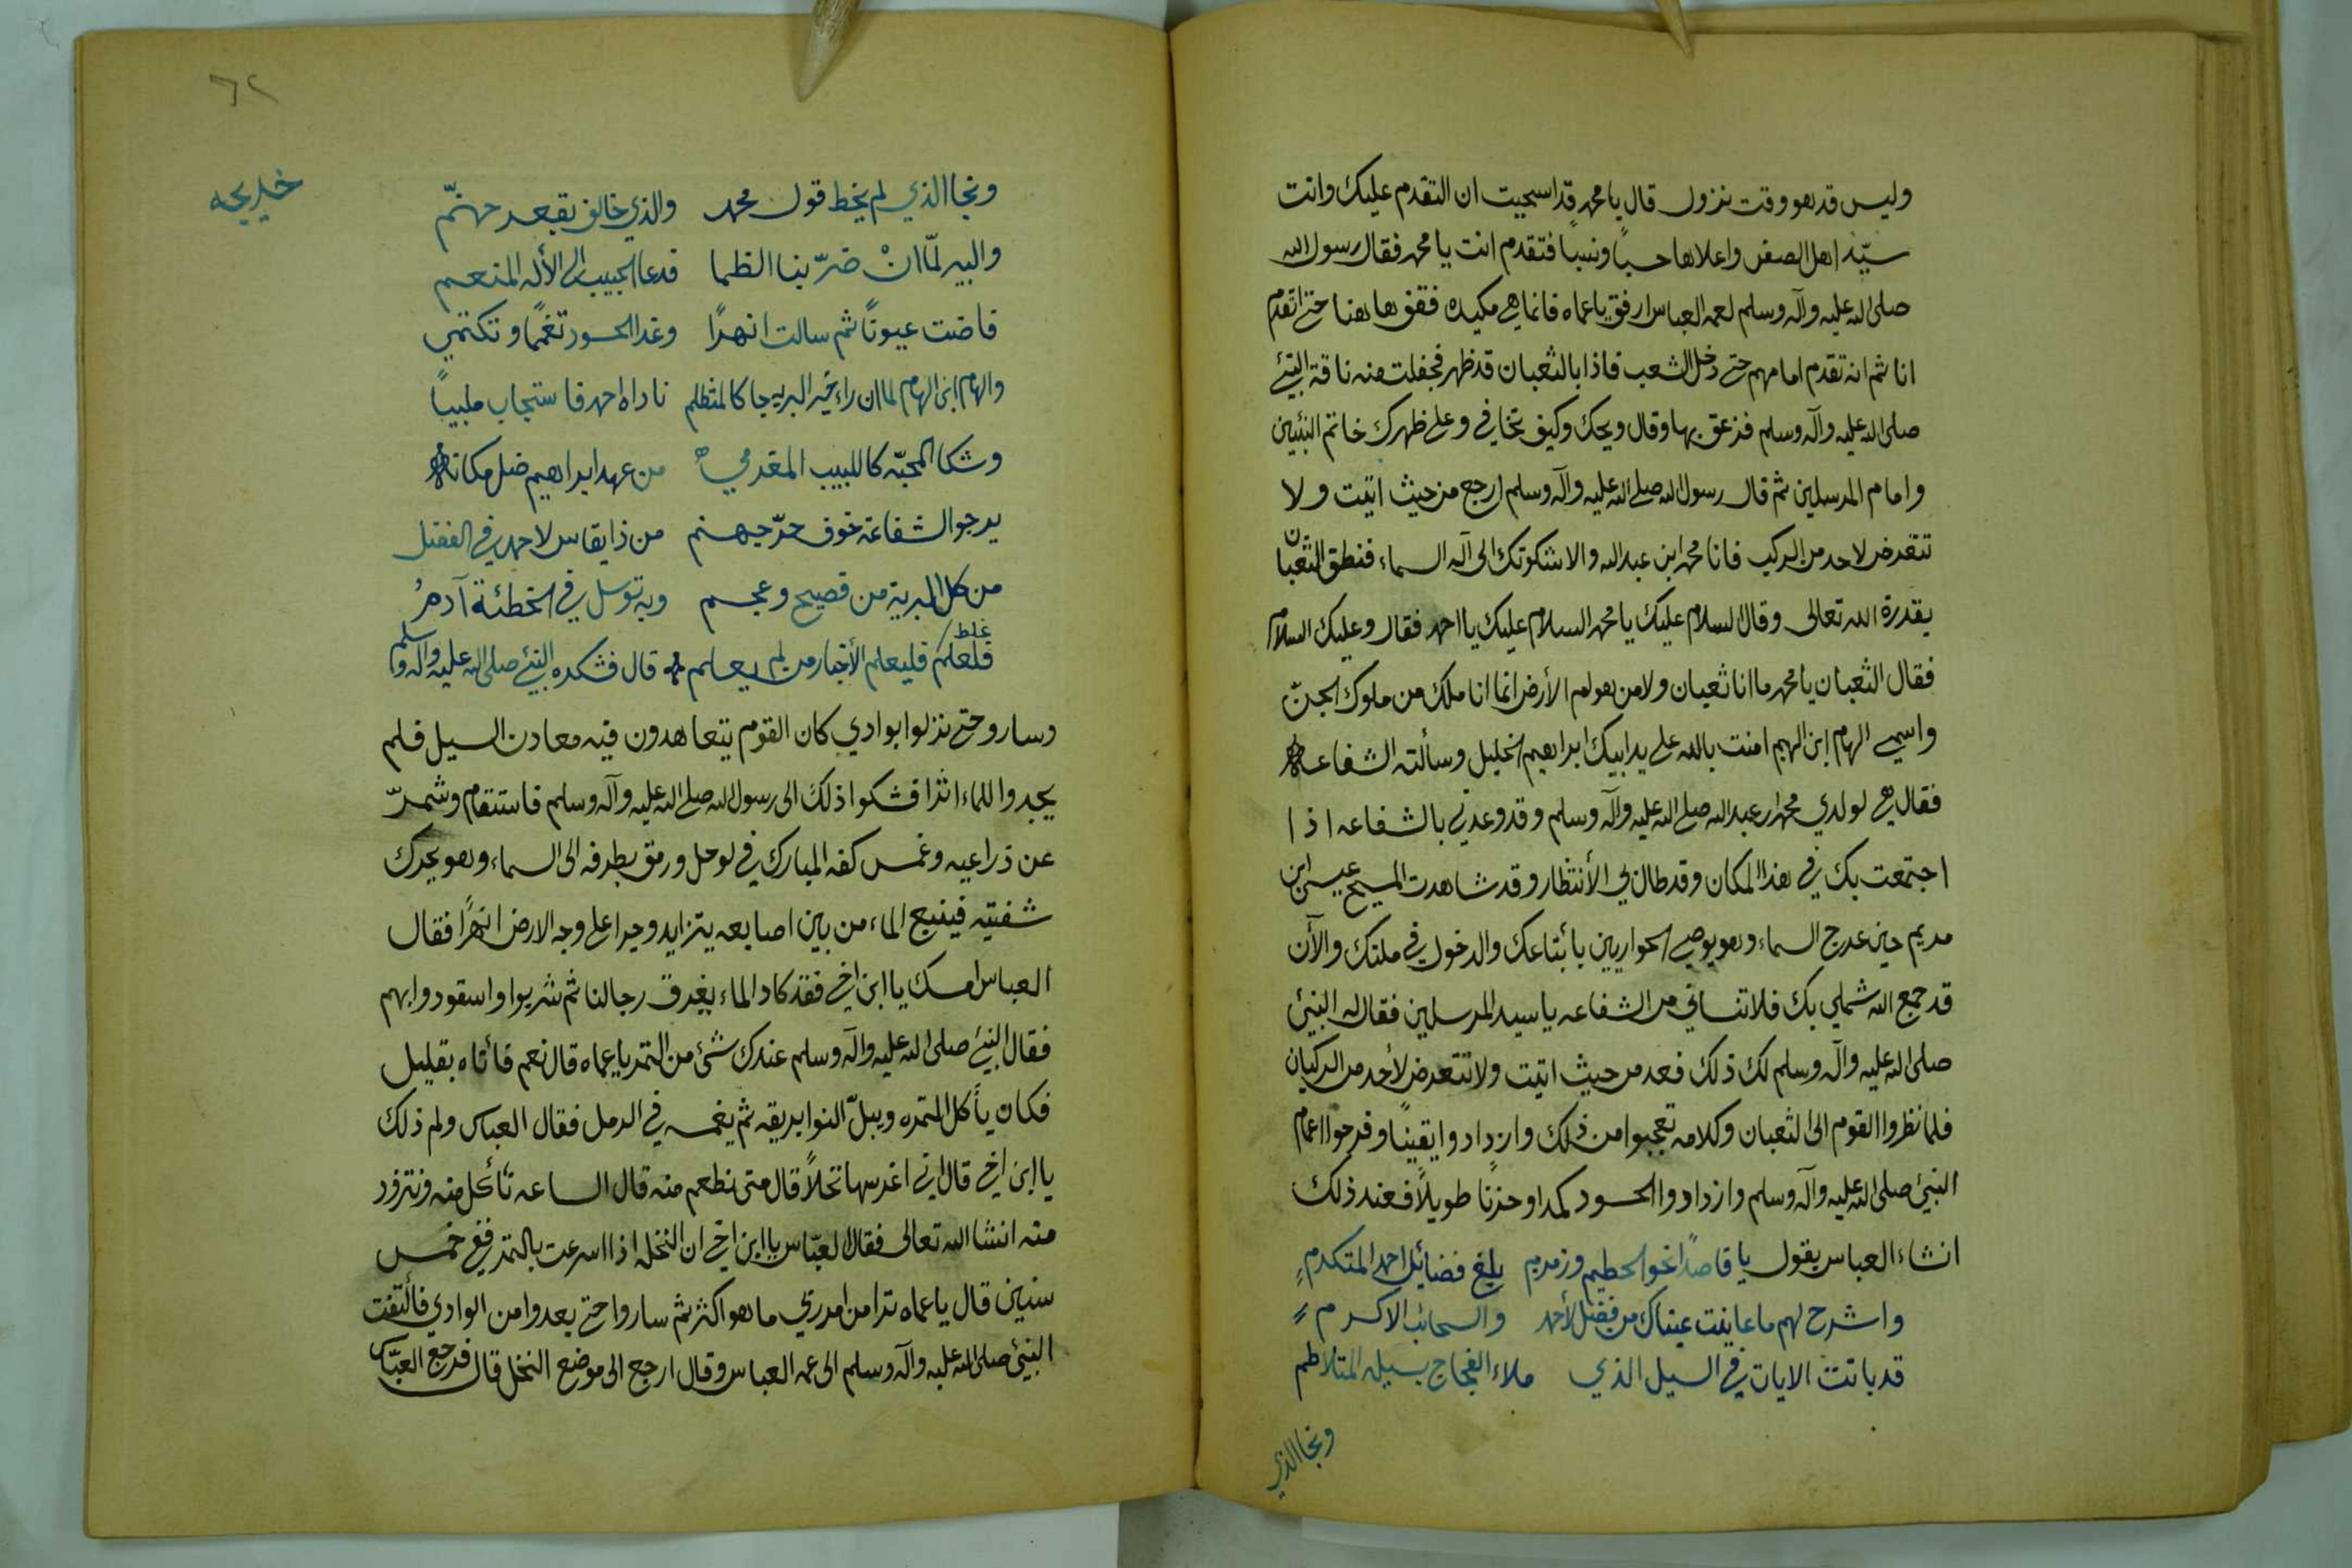 وليس قد هو وقت نزول قال يا محمد قد اسحيت ان التقدم عليك وانت
سيّد اهل الصفى واعلاها حسباً ونسباً فتقدم انت يا محمد فقال رسول الله
صلى الله عليه وآله وسلم لعمه العباس ارفق يا عماه فانما هي مكيده فقف ها هنا حتى اتقدم
انا ثم انه تقدم امامهم حتى دخل الشعب فاذا بالثعبان قد ظهر فجفلت منه ناقة النبئ
صلى الله عليه وآله وسلم فزعق بها وقال ويحك وكيف تخافي وعلى ظهرك خاتم النبئين
وامام المرسلين ثم قال رسول الله صلى الله عليه وآله وسلم ارجع من حيث اتيت ولا
تتعرض لاحد من الركب فانا محمد ابن عبد الله والا شكوتك الى آله السماء فنطق الثعبان
بقدرة الله تعالى وقال السلام عليك يا محمد السلام عليك يا احمد فقال وعليك السلام
فقال الثعبان يا محمد ما انا ثعبان ولا من هوام الأرض انما انا ملك من ملوك الجنّ
واسمي الهام ابن الهيم امنت بالله على يد ابيك ابراهيم الخليل وسألته الشفاعه
فقال هي لولدي محمد ابن عبد الله صلى الله عليه وآله وسلم وقد وعدني بالشفاعه اذا
اجتمعت بك في هذا المكان وقد طال بي الأنتظار وقد شاهدت المسيح عيسى ابن
مريم حين عرج السماء وهو يوصي الحواريين بأبتاعك والدخول في ملتك والآن
قد جمع الله شملي بك فلا تنساني من الشفاعه يا سيد المرسلين فقال له النبئ
صلى الله عليه وآله وسلم لك ذلك فعد من حيث اتيت ولا تتعرض لأحد من الركبان
فلما نظروا القوم الى الثعبان وكلامه تعجبوا من ذلك وازدادوا يقيناً وفرحوا اعمام
النبئ صلى الله عليه وآله وسلم وازدادوا الحسود كمدا وحزنا طويلاً فعند ذلك
انشاء العباس يقول يا قاصداً نحو الحطيم وزمزم بلغ فضائل احمد المتكرم
واشرح لهم ما عاينت عيناك من فضل لأحمد والسحائب الاكرم
قد بانت الايات في السيل الذي ملاء الفجاج بسيله المتلاطم
ونجا الذي
٦٢
خديجه
ونجا الذي لم يخط قول محمد والذي خالف بقعر جهنّم
والبير لمّا انْ ضرّ بنا الظما فدعا الحبيب الى الأله المنعم
فاضت عيوناً ثم سالت انهرًا وغدا الحسود تغمًا وتكتمي
والهام ابن الهام لما ان راء خير البريه جا كالمتظلم ناداه احمد فاستجاب ملبياً
وشكا المحبّه كاللبيب المغرمي من عهد ابراهيم ضل مكانه
يرجوا الشفاعة خوف حرّ جهنم من ذا يقاس لاحمد في الفضل
من كل البرية من فصيح وعجم وبه توسل في الخطئة آدم
غلط
فلعلم فليعلم الأخبار من لم يعلم قال فشكره النبئ صلى الله عليه وآله وسلم
وساروا حتى نزلوا بوادي كان القوم يتعاهدون فيه معادن السيل فلم
يجدوا للماء اثرا فشكوا ذلك الى رسول الله صلى الله عليه وآله وسلم فاستقام وشمرّ
عن ذراعيه وغمس كفه المبارك في لوحل ورمق بطرفه الى السماء وهو يحرك
شفتيه فينبع الماء من بين اصابعه يتزايد وجرا على وجه الارض انهرًا فقال
العباس امسك يا ابن اخي فقد كاد الماء يغرق رجالنا ثم شربوا واسقو دوابهم
فقال النبئ صلى الله عليه وآله وسلم عندك شئ من التمر يا عماه قال نعم فأتاه بقليل
فكان يأكل التمره ويبلّ النوا بريقه ثم يغمسه في الرمل فقال العباس ولم ذلك
يا ابن اخي قال اني اغرسها نخلاً قال متى نطعم منه قال الساعه تأكل منه ونتزود
منه انشا الله تعالى فقال العبّاس يا ابن اخي ان النخله اذا اسرعت بالتمر ففي خمس
سنين قال يا عماه ترا من امر ربي ما هو اكثر ثم ساروا حتى بعدوا من الوادي فألتفت
النبئ صلى الله عليه وآله وسلم الى عمه العباس وقال ارجع الى موضع النخل قال فرجع العبّاس